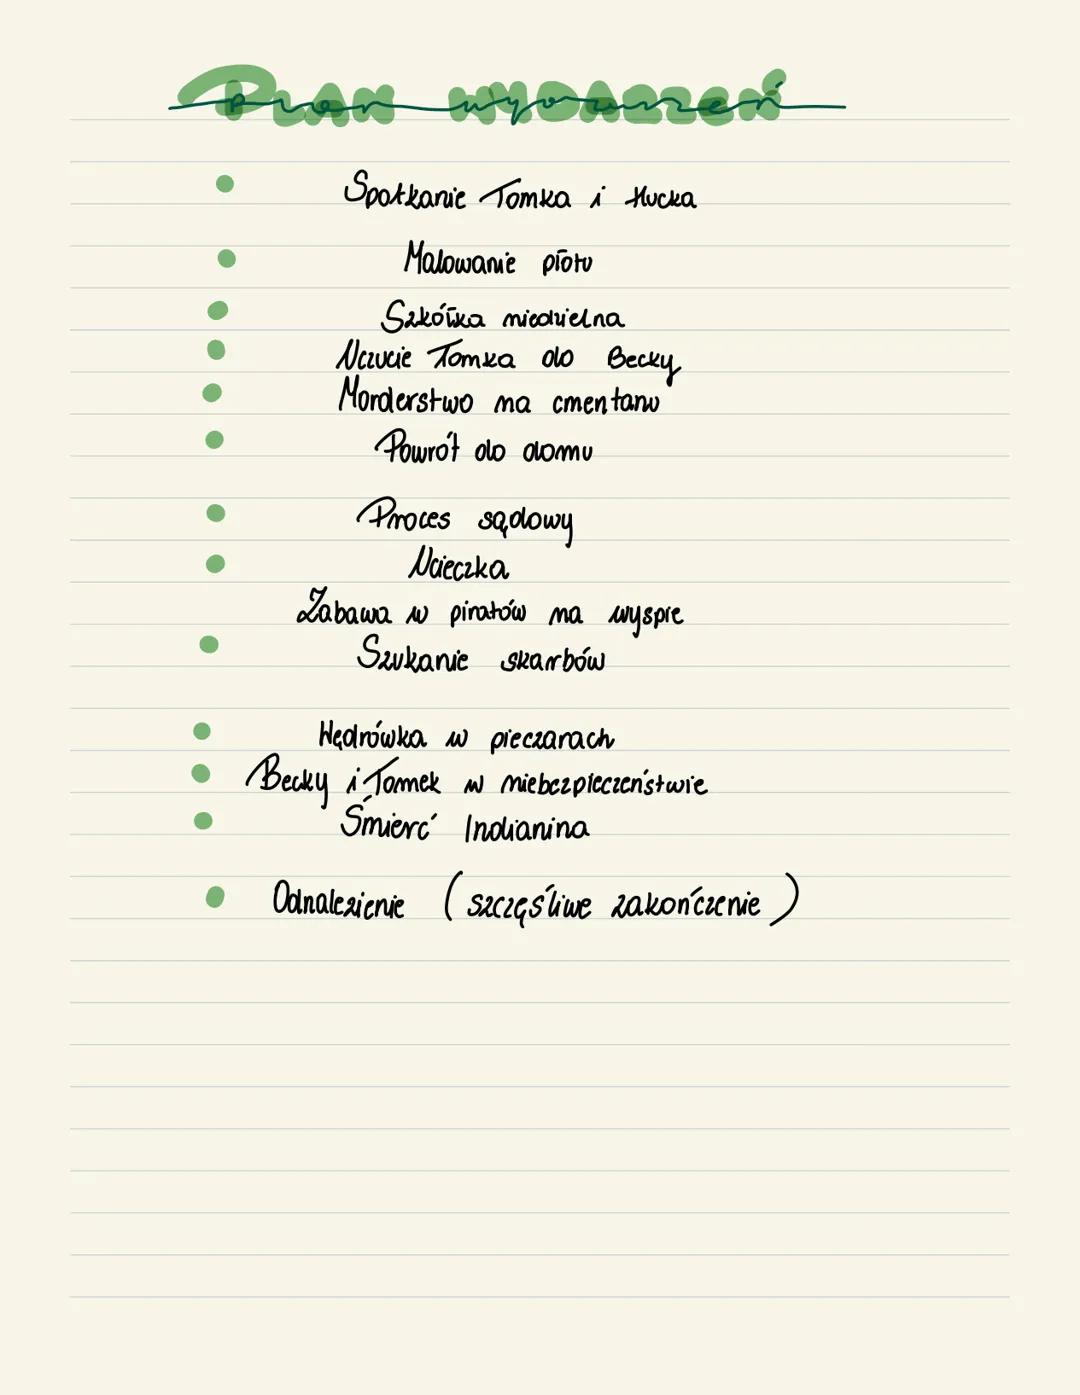 PLAN WYDARZEŃ
Plan wydarzeń
Spotkanie Tomka i Hucka
Malowanie płotu
Szkółka niedzielna
Uczucie Tomka do Becky
Morderstwo na cmentarzu
Powrót do domu
Proces sądowy
Ucieczka
Zabawa w piratów na wyspie
Szukanie skarbów
Wędrówka w pieczarach
Becky i Tomek w niebezpieczeństwie
Śmierć Indianina
Odnalezienie (szczęśliwe zakończenie)